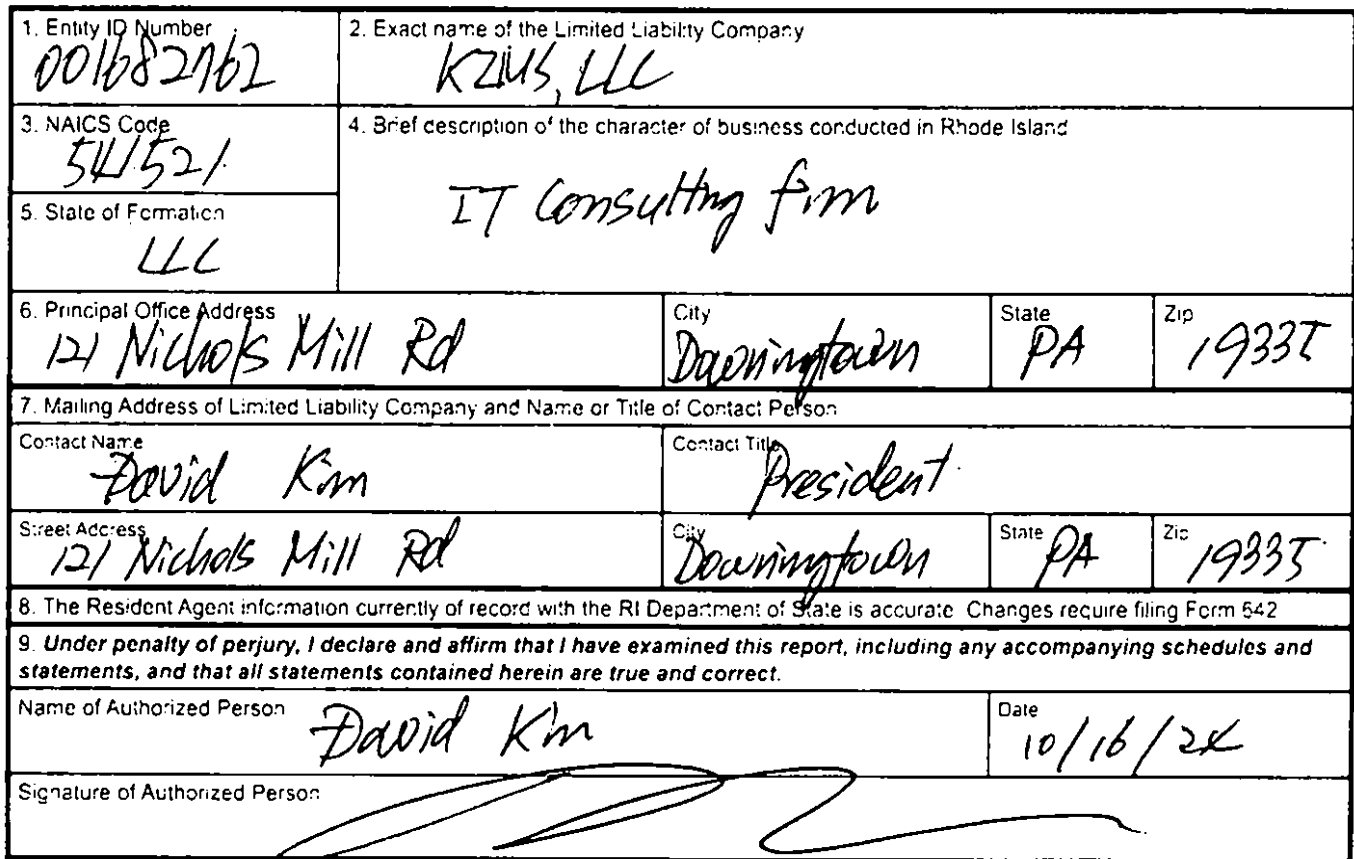 1. Entity ID Number
001682762
2. Exact name of the Limited Liability Company
KZIUS, LLC
3. NAICS Code
541521
4. Brief description of the character of business conducted in Rhode Island
IT Consulting firm
5. State of Formation
LLC
6. Principal Office Address
121 Nichols Mill Rd
City
Downingtown
State
PA
Zip
19335
7. Mailing Address of Limited Liability Company and Name or Title of Contact Person
Contact Name
David Kim
Contact Title
President
Street Address
121 Nichols Mill Rd
City
Downingtown
State
PA
Zip
19335
8. The Resident Agent information currently of record with the RI Department of State is accurate. Changes require filing Form 642
9. Under penalty of perjury, I declare and affirm that I have examined this report, including any accompanying schedules and
statements, and that all statements contained herein are true and correct.
Name of Authorized Person
David Kim
Date
10/16/24
Signature of Authorized Person